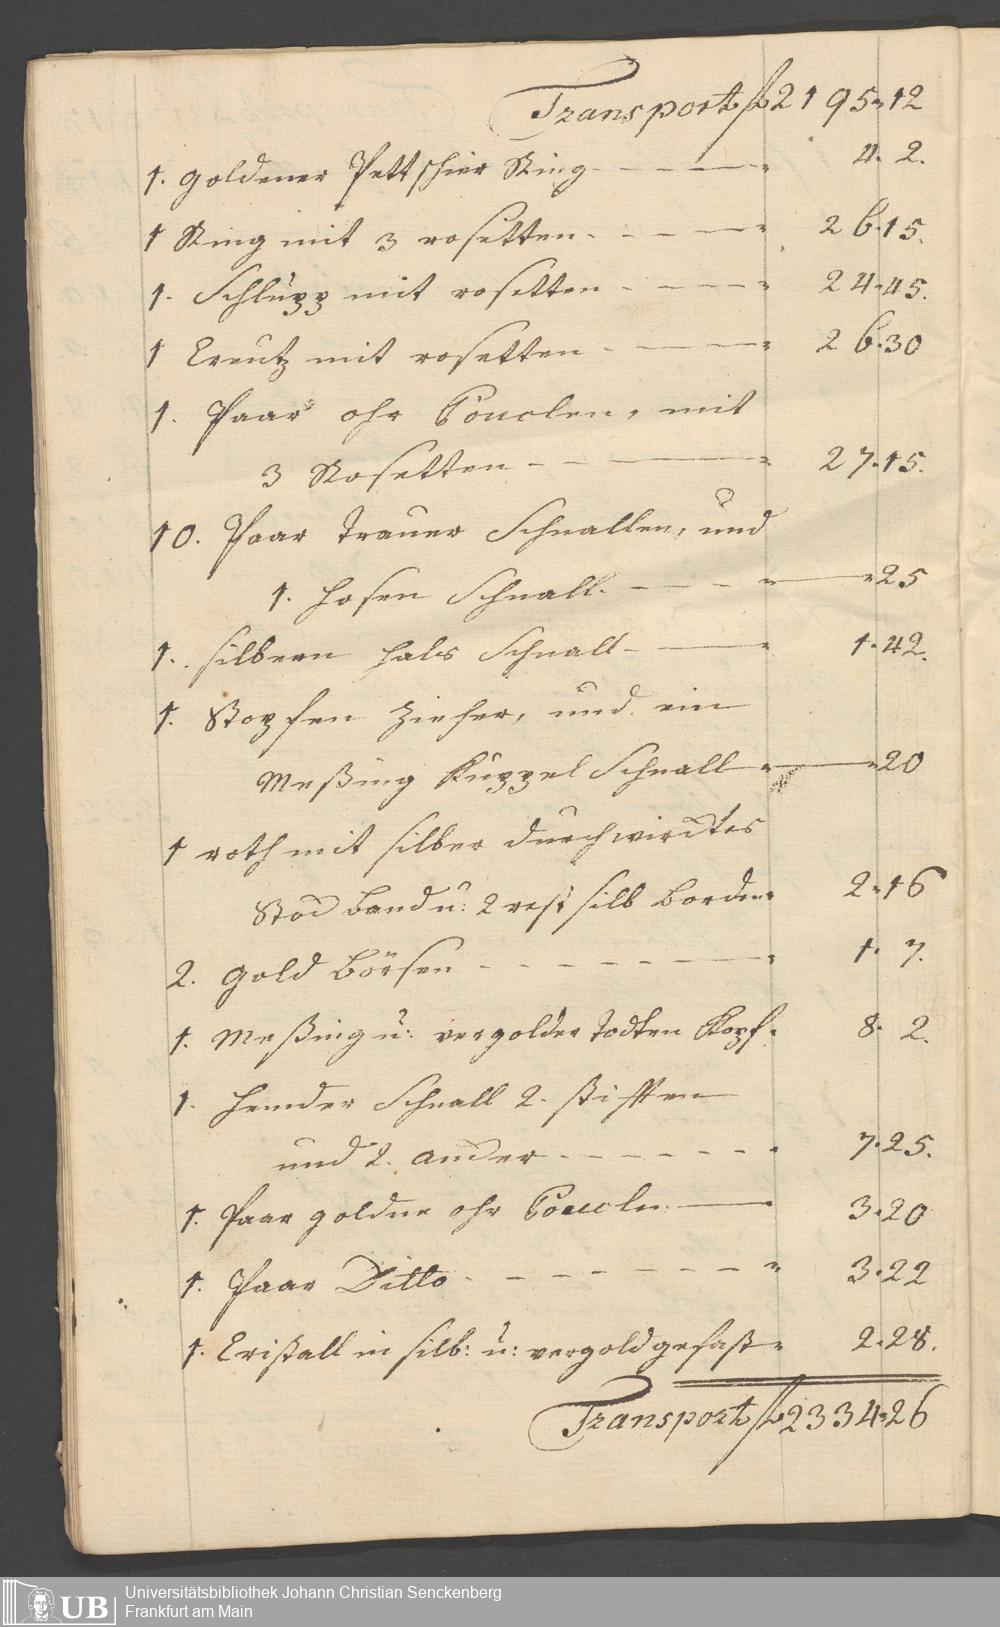 Transport f 2195 " 12
1. goldener Pettschier Ring - - - - " 4. 2.
1 Ring mit 3 rosetten. - - - - " 26. 15.
1. Schlupp mit rosetten - - - - " 24 " 45.
1 Creutz mit rosetten - - - - " 26. 30
1. Paar ohr Bouclen, mit
3 Rosetten - - - " 27. 15.
10. Paar Trauer Schnallen, und
1. hosen Schnall. - - - " " 25
1. silbern hals Schnall - - " 1. 42.
1. Stopfen Zieher, und ein
Meßing Kuppel Schnall " " 20
1 roth mit silber durchwircktes
Stock band u: 2 rest silb borden " 2 " 16
2. gold börsen - - - - - - " 1. 7.
1. Meßing u: vergolder Todten Kopf. 8. 2.
1. hemder Schnall 2. stifften
und 2. ander - - - - - - . 7. 25.
1. Paar goldne ohr Boucln - . 3. 20
1. Paar Ditto - - - - - - " 3. 22
1. Cristall in silb: u: vergold gefast " 2. 28.
Transport f 2334 " 26
UB
Universitätsbibliothek Johann Christian Senckenberg
Frankfurt am Main